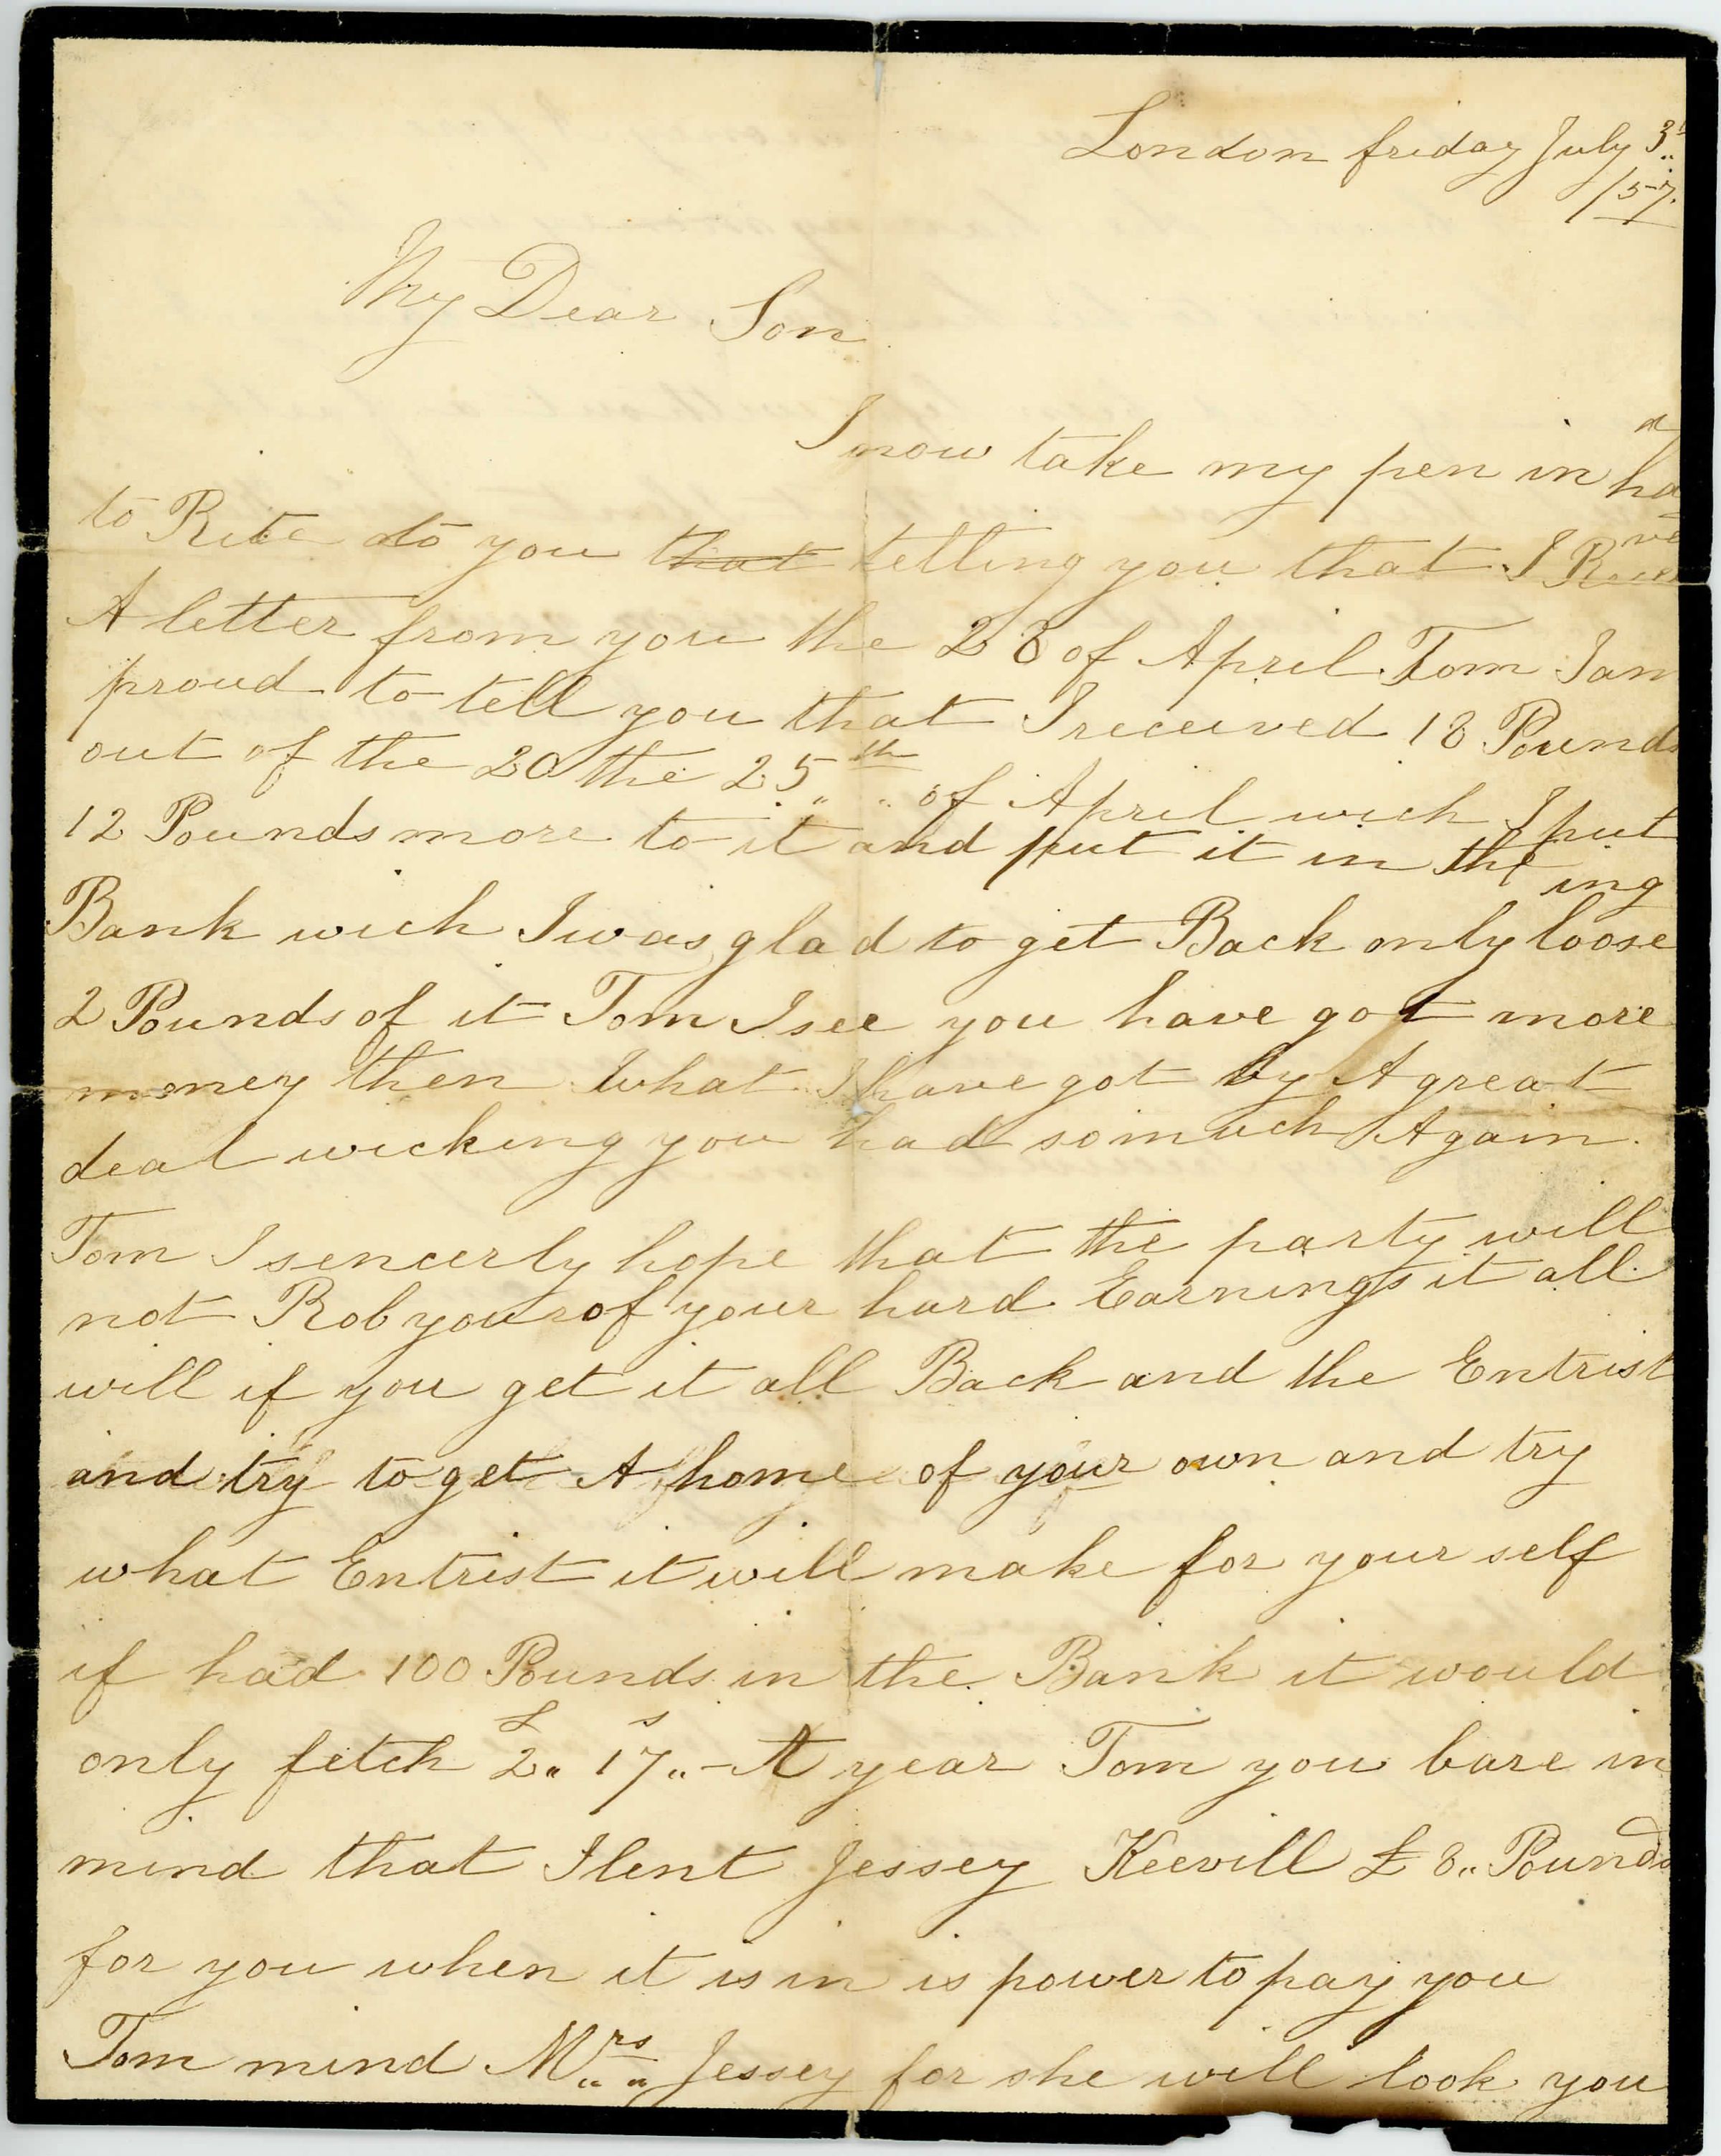 London friday July 3
/57.
My Dear Son
I now take my pen in
to Rite to you that telling you that I
A letter from you the 28 of April Tom I am
proud to tell you that I received 18 Pounds
out of the 20 the 25th of April wich I put
12 Pounds more to it and put it in the
Bank wich I was glad to get Back only loose ing
2 Pounds of it Tom I see you have got more
money then what I have got by A great
deal wicking you had so much Again.
Tom I sencerly hope that the party will
not Rob you of your hard Earnings it all
will if you get it all Back and the Entrist
and try to get A home of your own and try
what Entrist it will make for your self
if had 100 Pounds in the Bank it would
only fetch £2" 17s" - A year Tom you bare in
mind that I lent Jessey Keevill £ 8" Pounds
for you when it is in is power to pay you
Tom mind Mrs Jessey for she will look you